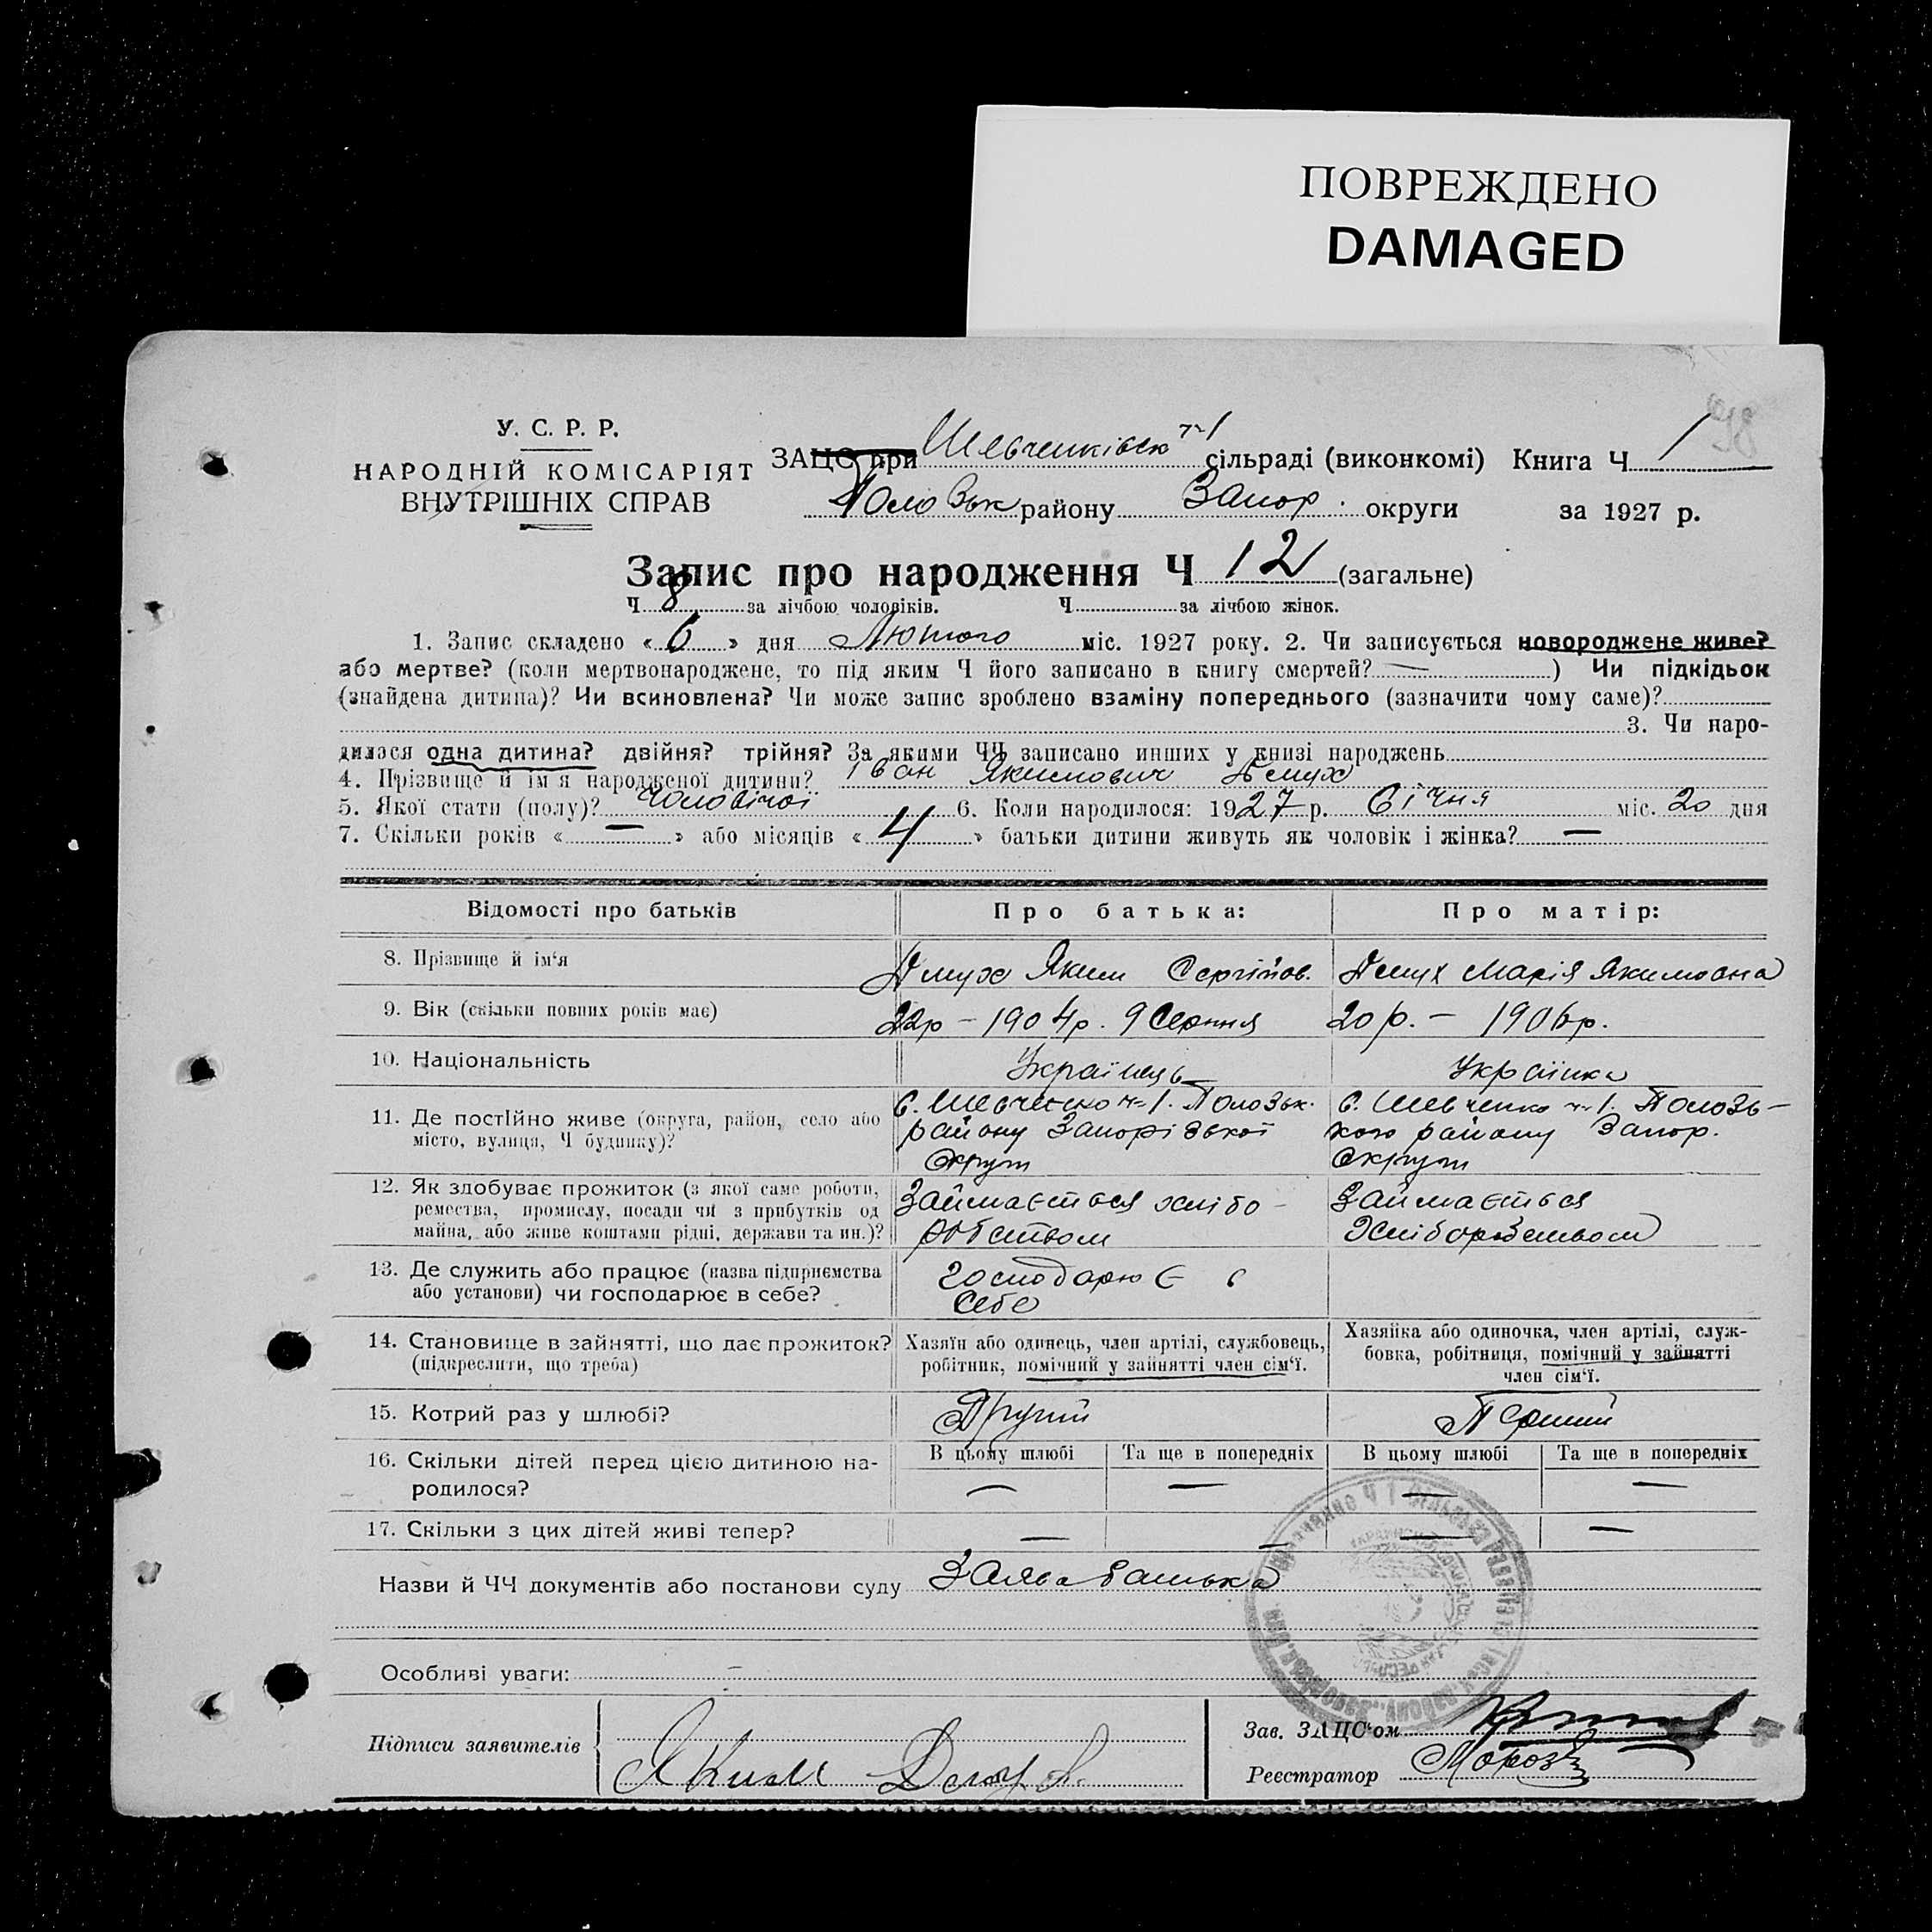 ПОВРЕЖДЕНО
DAMAGED
98
У. С. Р. Р.
НАРОДНІЙ КОМІСАРІЯТ
ВНУТРІШНІХ СПРАВ
ЗАЦС при Шевченківськ ч-1 сільраді (виконкомі) Книга Ч 1
Пологівськ району Запор. округи за 1927 р.
Запис про народження Ч 12 (загальне)
Ч 8 за лічбою чоловіків. Ч за лічбою жінок.
1. Запис складено « 6 » дня Лютого міс. 1927 року. 2. Чи записується новороджене живе?
або мертве? (коли мертвонароджене, то під яким Ч його записано в книгу смертей? — ) Чи підкідьок
(знайдена дитина)? Чи всиновлена? Чи може запис зроблено взаміну попереднього (зазначити чому саме)?
3. Чи наро-
дилася одна дитина? двійня? трійня? За якими ЧЧ записано инших у книзі народжень
4. Прізвище й ім'я народженої дитини? Іван Якимович Демух
5. Якої стати (полу)? чоловічої 6. Коли народилося: 1927 р. Січня міс. 20 дня
7. Скільки років « — » або місяців « 4 » батьки дитини живуть як чоловік і жінка? —
Відомості про батьків Про батька: Про матір:
8. Прізвище й ім'я Демух Яким Сергійов. Демух Марія Якимовна
9. Вік (скільки повних років має) 22р – 1904р. 9 Серпня 20 р. – 1906р.
10. Національність Українець Українка
11. Де постійно живе (округа, район, село або місто, вулиця, Ч будинку)?
с. Шевченко ч-1. Полозьк.
району Запорізької
Округи
с. Шевченко ч-1. Полозь-
кого району Запор.
Округи
12. Як здобуває прожиток (з якої саме роботи,
ремества, промислу, посади чи з прибутків од
майна, або живе коштами рідні, держави та ин.)?
Займається хлібо-
робством
Займається
Хліборобством
13. Де служить або працює (назва підприємства
або установи) чи господарює в себе?
Господарює в
себе
14. Становище в зайнятті, що дає прожиток?
(підкреслити, що треба)
Хазяїн або одинець, член артілі, службовець,
робітник, помічний у зайнятті член сім'ї.
Хазяйка або одиночка, член артілі, служ-
бовка, робітниця, помічний у зайнятті
член сім'ї.
15. Котрий раз у шлюбі? Другий Перший
16. Скільки дітей перед цією дитиною на-
родилося?
В цьому шлюбі Та ще в попередніх В цьому шлюбі Та ще в попередніх
— — — —
17. Скільки з цих дітей живі тепер? — — —
Назви й ЧЧ документів або постанови суду Заява батька
Особливі уваги: –
Підписи заявителів
Яким Демух
Зав. ЗАЦС'ом
Реєстратор Мороз